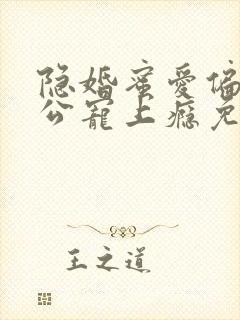 隐婚蜜爱偏
公宠上瘾免
王之道